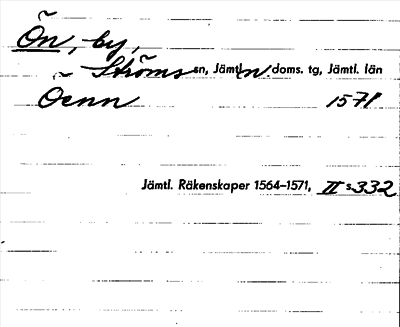 Ön, by,
Ströms sn, Jämtl n doms. tg, Jämtl. län
Öenn 1571
Jämtl. Räkenskaper 1564–1571, II s. 332